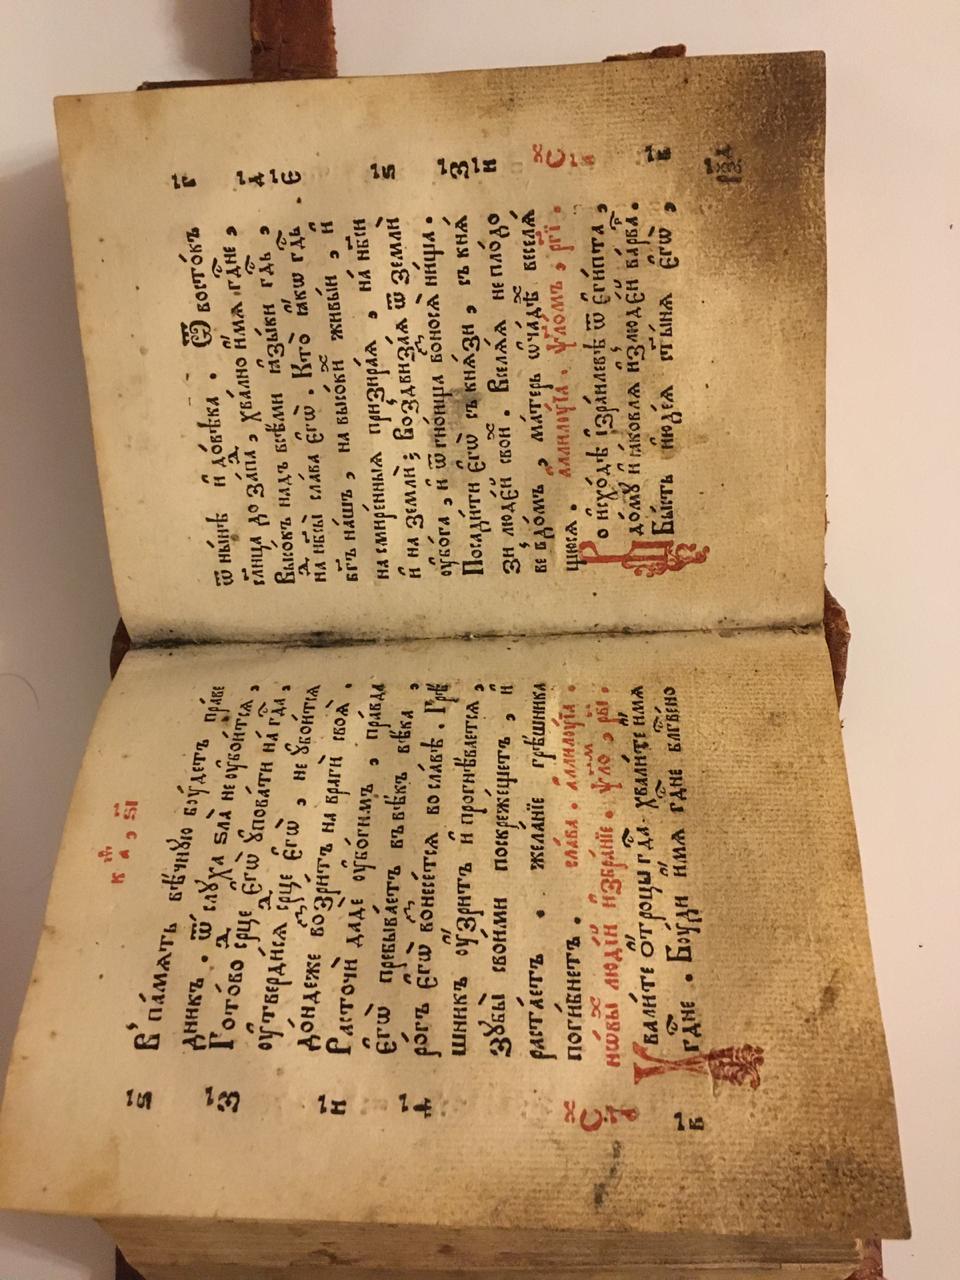 к҃а , ѕ҃і
ѕ҃
В' па́мѧть вѣ́чную бꙋ́детъ пра́ве
дникъ . ѿ слꙋ́ха ѕла̀ не ᲂубои́тсѧ ,
з҃
Гото́во срⷣце є҆гѡ̀ ᲂупова́ти на́ гⷭ҇да ,
ᲂутверди́сѧ срⷣце є҆гѡ̀ , не ᲂубои́тсѧ
н҃
до́ндеже воззри́тъ на врагѝ своѧ̀ .
Расточѝ дадѐ ᲂубо́гимъ , пра́вда
є҆гѡ̀ пребыва́етъ въ вѣ́къ вѣ́ка ,
ро́гъ є҆гѡ̀ вознесе́тсѧ во сла́вѣ . Грѣ́
шникъ ᲂу҆́зритъ и҆ прогнѣ́ваетсѧ ,
зꙋбы̀ свои́ми поскреже́щетъ , и҆
раста́етъ . жела́нїе грѣ́шника
поги́бнетъ . сла́ва . аллилꙋ́їа .
но́вы люде́й и҆збра́нїе . ѱло , р҃ві .
Хвали́те ѻ҆́троцы гⷭ҇да . хвали́те и҆́мѧ
в҃
гⷭ҇дне . Бꙋ́ди и҆́мѧ гⷭ҇дне блгве́но
ѿ нн҃ѣ и҆ до́ вѣка . Ѿ восто́къ
г҃
со́лнца до за́пад , хва́лно и҆́мѧ гⷭ҇дне ,
Высо́къ надъ всѣ́ми ꙗ҆зы́ки гⷭ҇дь ,
д҃
на нбсы̀ сла́ва є҆гѡ̀ . Кто̀ ꙗ҆́кѡ гⷭ҇дь .
є҃
бг҃ъ на́шъ , на высо́ки живы́и , и҆
на смире́нныѧ призира́ѧ , на нб҃сѝ
и҆ на землѝ ; Воздвиза́ѧ ѿ землѝ
ᲂубо́га , и҆ ѿ гно́ища возносѧ̀ ни́ща .
з҃
Посади́ти є҆гѡ̀ съ кнѧ́зи , съ кнѧ́
н҃
зи люде́й свои́х . Вселѧ́ѧ непло́до
ве в до́мъ , ма́терь ѡ҆ ча́дѣх веселѧ́
щꙋсѧ . аллилꙋ́їа . ѱло́мъ , р҃гі .
Во и҆схо́дѣ і҆зра́илевѣ ѿ є҆гѵ́пта ,
до́мꙋ и҆ꙗ҆́ковлѧ и҆з люде́й ва́рва .
Бы́сть и҆ꙋде́ѧ ст҃ы́нѧ є҆гѡ̀ ,